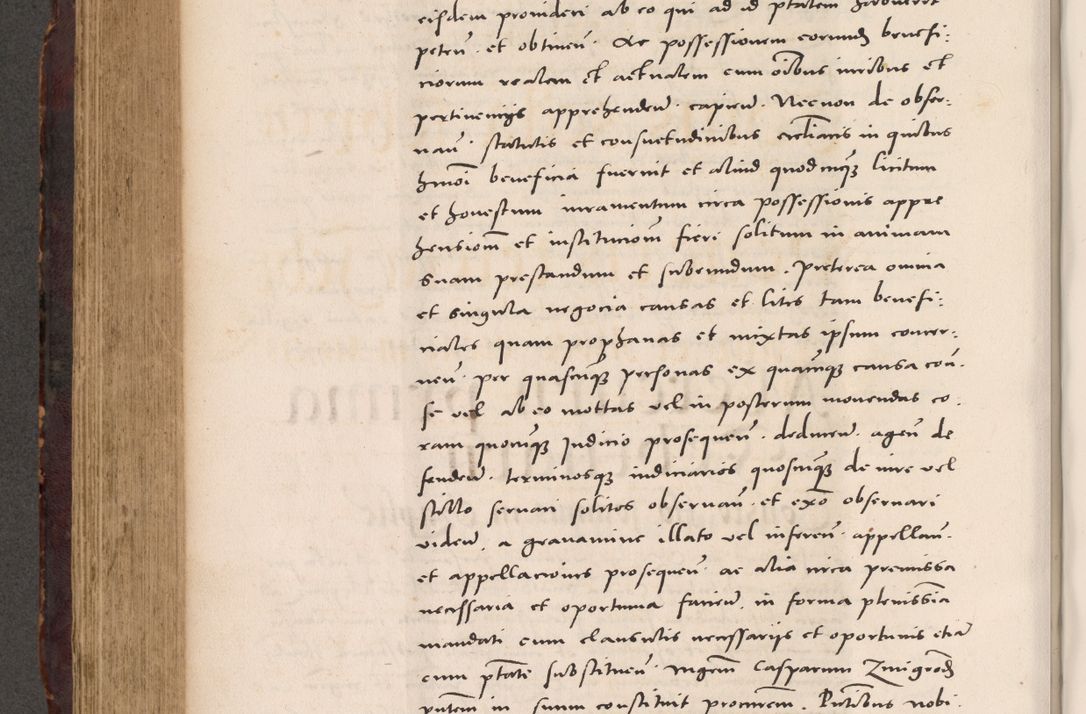 eisdem provideri ab eo qui ad id ptatem habuerit
peteñ et obtineñ. Ac possessionem eorundẽ benefi:
ciorum realem et actualem cum oĩbus iuribus et
pertinencijs apprehendeñ. capieñ. Necnon de obser:
uañ. statutis et consuetudinibus ecclĩaticis in quibus
hmoĩ beneficia fuerint et aliud quodcumq̃ licitum
et honestum iuramentum circa possessionis appre
hensionẽ et institucionẽ fieri solitum in animam
suam prestandum et subeundum. Preterea omnia
et singula negocia causas et lites tam benefi:
ciales quam prophanas et mixtas ipsum concer:
neñ. per quascumq̃ personas ex quacumq̃ causa coñ.
se vel ab eo mottas vel in posterum mouendas co.
ram quocumq̃ Judicio prosequeñ. deduceñ. ageñ de
fendeñ. terminosq̃ iudiciarios quoscumq̃ de iure vel
stillo seruari solitos obseruañ. et exõ obseruari
videñ. a grauamine illato vel infereñ. appellañ.
et appellaciones prosequeñ. ac alia circa premissa
necessaria et oportuna facieñ. in forma plenissĩa
mandati cum clausulis necessarijs et oportunis etiã
cum ptãte substitueñ. mgrm̃ Casparum Zmigrodẽ
pñtem in suum constituit procurem̃. Pñtibus nobi.